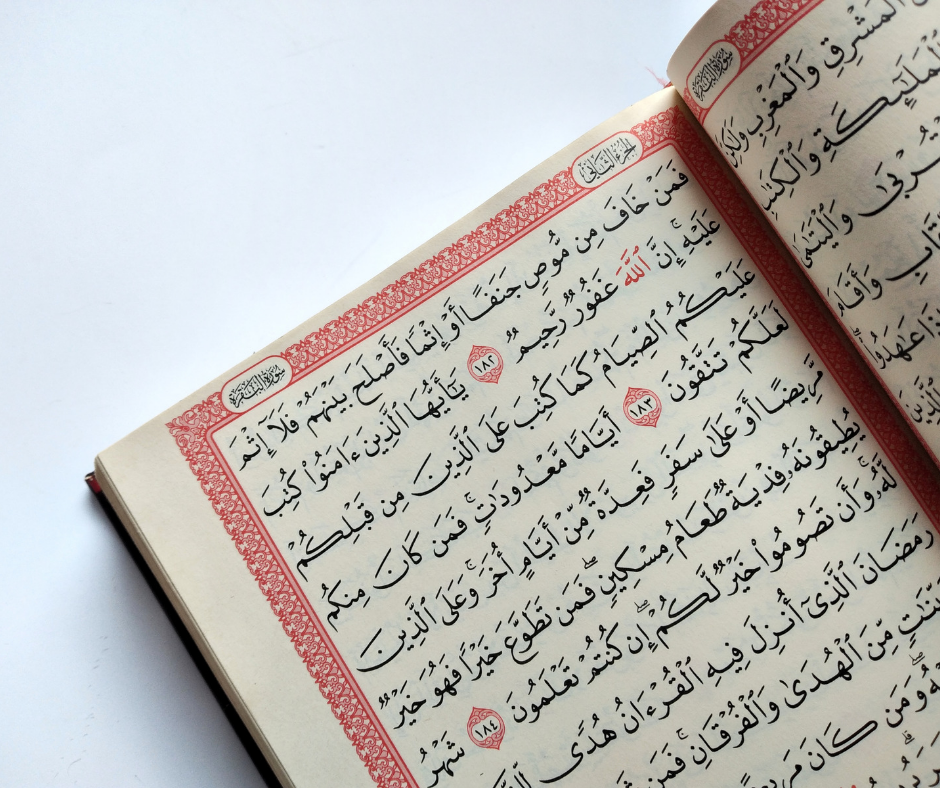 سورة البقرة
ٱلْمَشْرِقِ وَٱلْمَغْرِبِ وَلَٰكِنَّ
وَٱلْمَلَٰٓئِكَةِ وَٱلْكِتَٰبِ
وَٱلْيَتَٰمَىٰ
وَأَقَامَ
عَٰهَدُوا۟
الجزء الثاني
سورة البقرة
فَمَنْ خَافَ مِن مُّوصٍ جَنَفًا أَوْ إِثْمًا فَأَصْلَحَ بَيْنَهُمْ فَلَآ إِثْمَ
عَلَيْهِ ۚ إِنَّ ٱللَّهَ غَفُورٌ رَّحِيمٌ ١٨٢ يَٰٓأَيُّهَا ٱلَّذِينَ ءَامَنُوا۟ كُتِبَ
عَلَيْكُمُ ٱلصِّيَامُ كَمَا كُتِبَ عَلَى ٱلَّذِينَ مِن قَبْلِكُمْ
لَعَلَّكُمْ تَتَّقُونَ ١٨٣ أَيَّامًا مَّعْدُودَٰتٍ ۚ فَمَن كَانَ مِنكُم
مَّرِيضًا أَوْ عَلَىٰ سَفَرٍ فَعِدَّةٌ مِّنْ أَيَّامٍ أُخَرَ ۚ وَعَلَى ٱلَّذِينَ
يُطِيقُونَهُۥ فِدْيَةٌ طَعَامُ مِسْكِينٍ ۖ فَمَن تَطَوَّعَ خَيْرًا فَهُوَ خَيْرٌ
لَّهُۥ ۚ وَأَن تَصُومُوا۟ خَيْرٌ لَّكُمْ ۖ إِن كُنتُمْ تَعْلَمُونَ ١٨٤ شَهْرُ
رَمَضَانَ ٱلَّذِىٓ أُنزِلَ فِيهِ ٱلْقُرْءَانُ هُدًى
مِّنَ ٱلْهُدَىٰ وَٱلْفُرْقَانِ ۚ فَمَن
وَمَن كَانَ